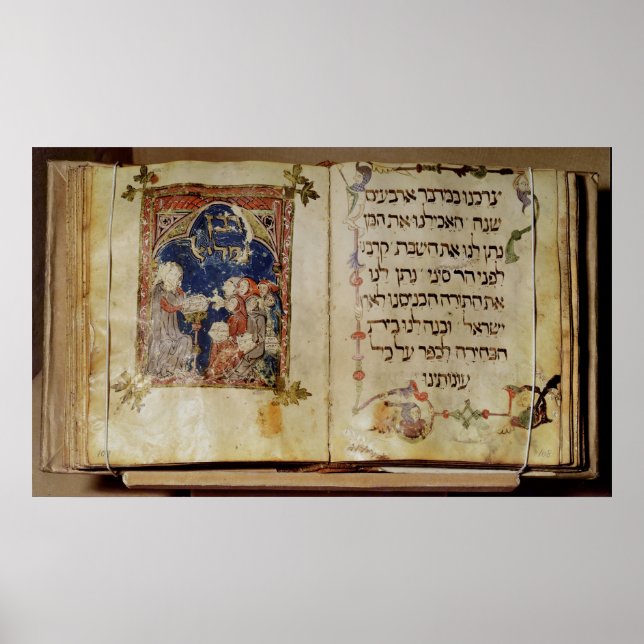 רבן
גמליאל
צרכנו במדבר ארבעים
שנה האכילנו את המן
נתן לנו את השבת קרבנו
לפני הר סיני נתן לנו
את התורה הכניסנו לא׳
ישראל ובנה לנו בית
הבחירה לכפר על כל
עונותינו
108